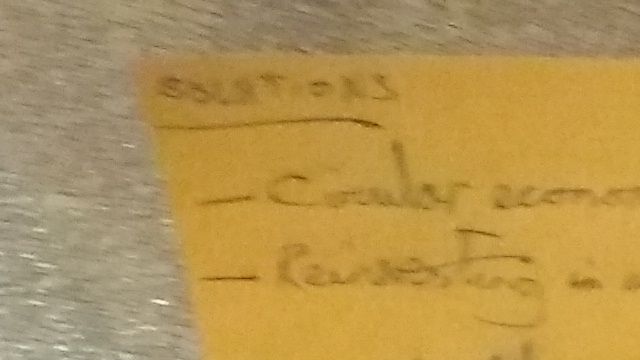 SOLUTIONS
- Circular econo
- Reinvesting in